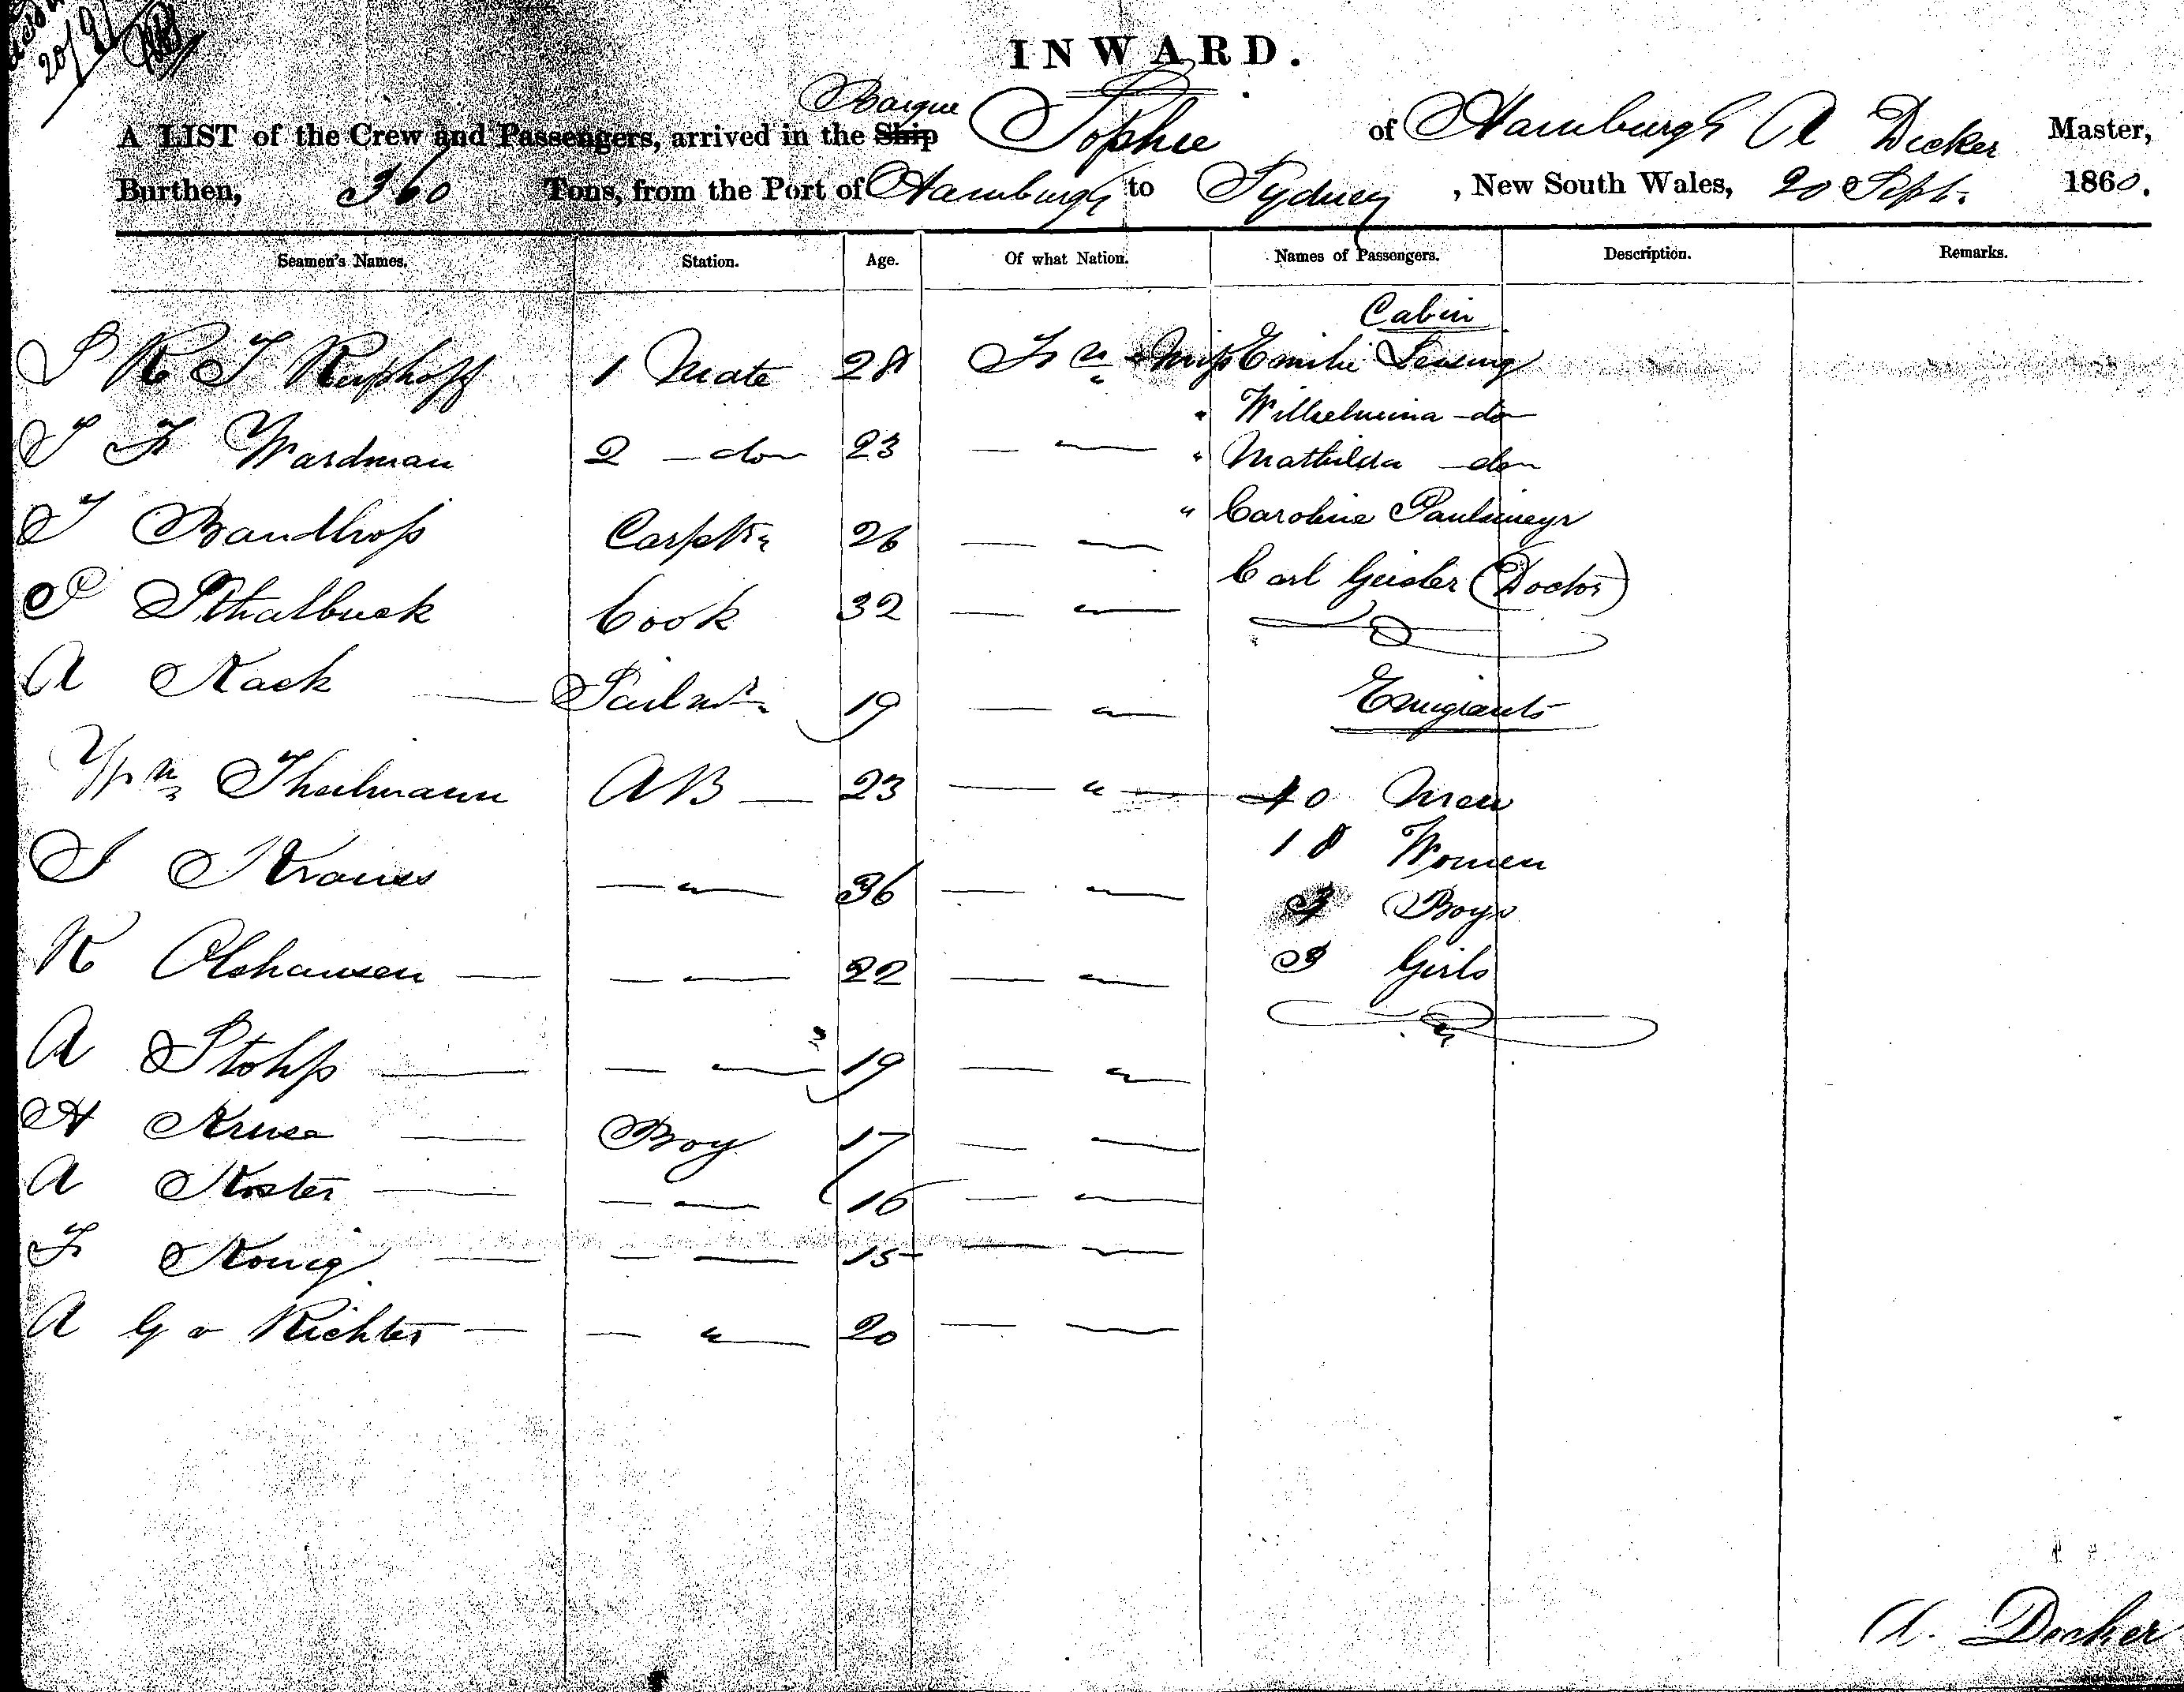 20/9/
INWARD.
A LIST of the Crew and Passengers, arrived in the Ship Barque Sophie of Hamburgh A Decker Master,
Burthen, 360 Tons, from the Port of Hamburgh to Sydney, New South Wales, 20 Sept. 1860.
Seamen's Names. Station. Age. Of what Nation. Names of Passengers. Description. Remarks.
Cabin
1 Mate 28 Miss Emilie
J F Wardman 2 - do 23 — " —
" Wilhelmina - do
" Mathilda - do
J Bandthop 26 — " —
" Caroline Paulsmeyr
P Sthalbuck Cook 32 — " —
Carl Geisler (Doctor)
A Kack — 19 — " —
Emigrants
Wm Theilmann AB — 23 — " —
40 Men
18 Women
J Krauss — " — 36 — " —
3 Boys
K Olshausen — — " — 22 — " —
3 Girls
A Stohp — — " — 19 — " —
H Kruse — Boy 17 — " —
A Koster — — " — 16 — " —
F Konig — — " — 15 — " —
A G v Richter — — " — 20 — " —
A. Decker